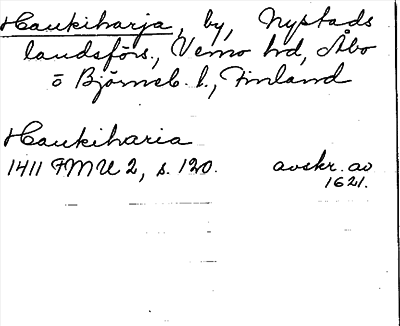 Haukiharja, by, Nystads
landsförs., Vemo hd, Åbo
o Björneb. l., Finland
Haukiharia
1411 FMU 2, s. 120. avskr. av
1621.